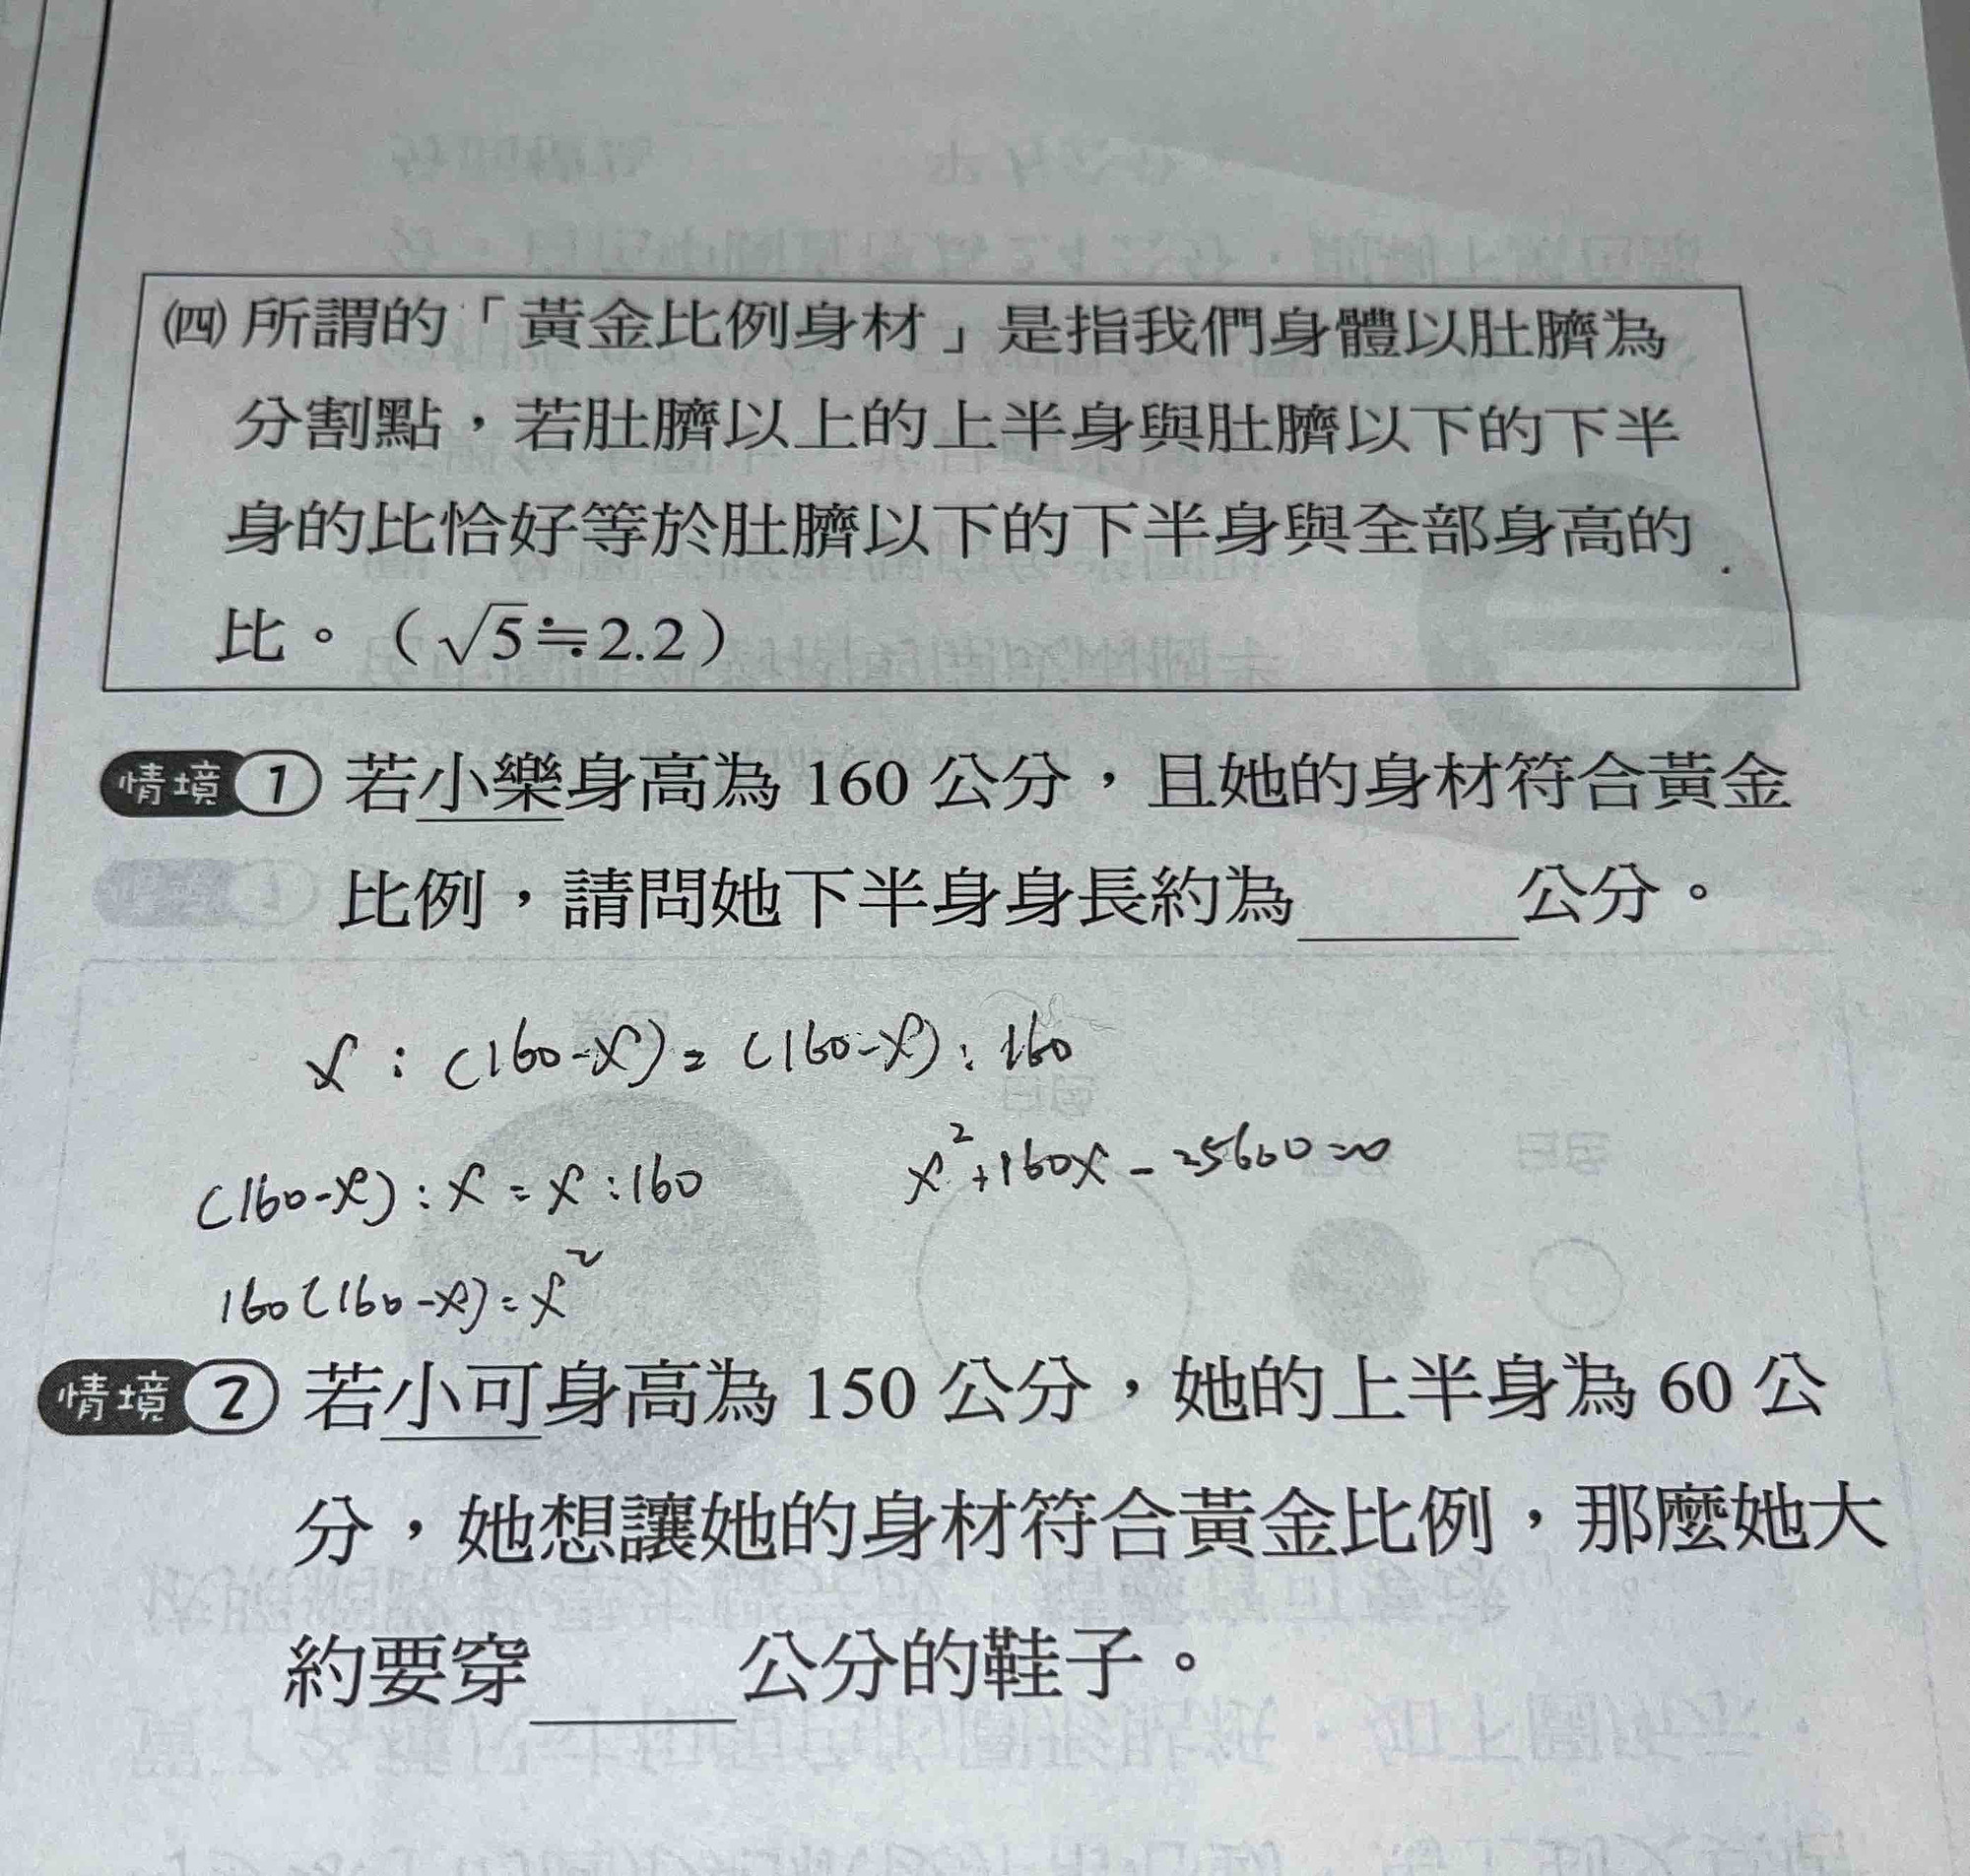 ㈣ 所謂的「黃金比例身材」是指我們身體以肚臍為
分割點，若肚臍以上的上半身與肚臍以下的下半
身的比恰好等於肚臍以下的下半身與全部身高的
比。（√5≒2.2）
情境 1 若小樂身高為 160 公分，且她的身材符合黃金
比例，請問她下半身身長約為______公分。
x : (160-x) = (160-x) : 160
(160-x) : x = x : 160
x²+160x-25600=0
160(160-x)=x²
情境 2 若小可身高為 150 公分，她的上半身為 60 公
分，她想讓她的身材符合黃金比例，那麼她大
約要穿______公分的鞋子。